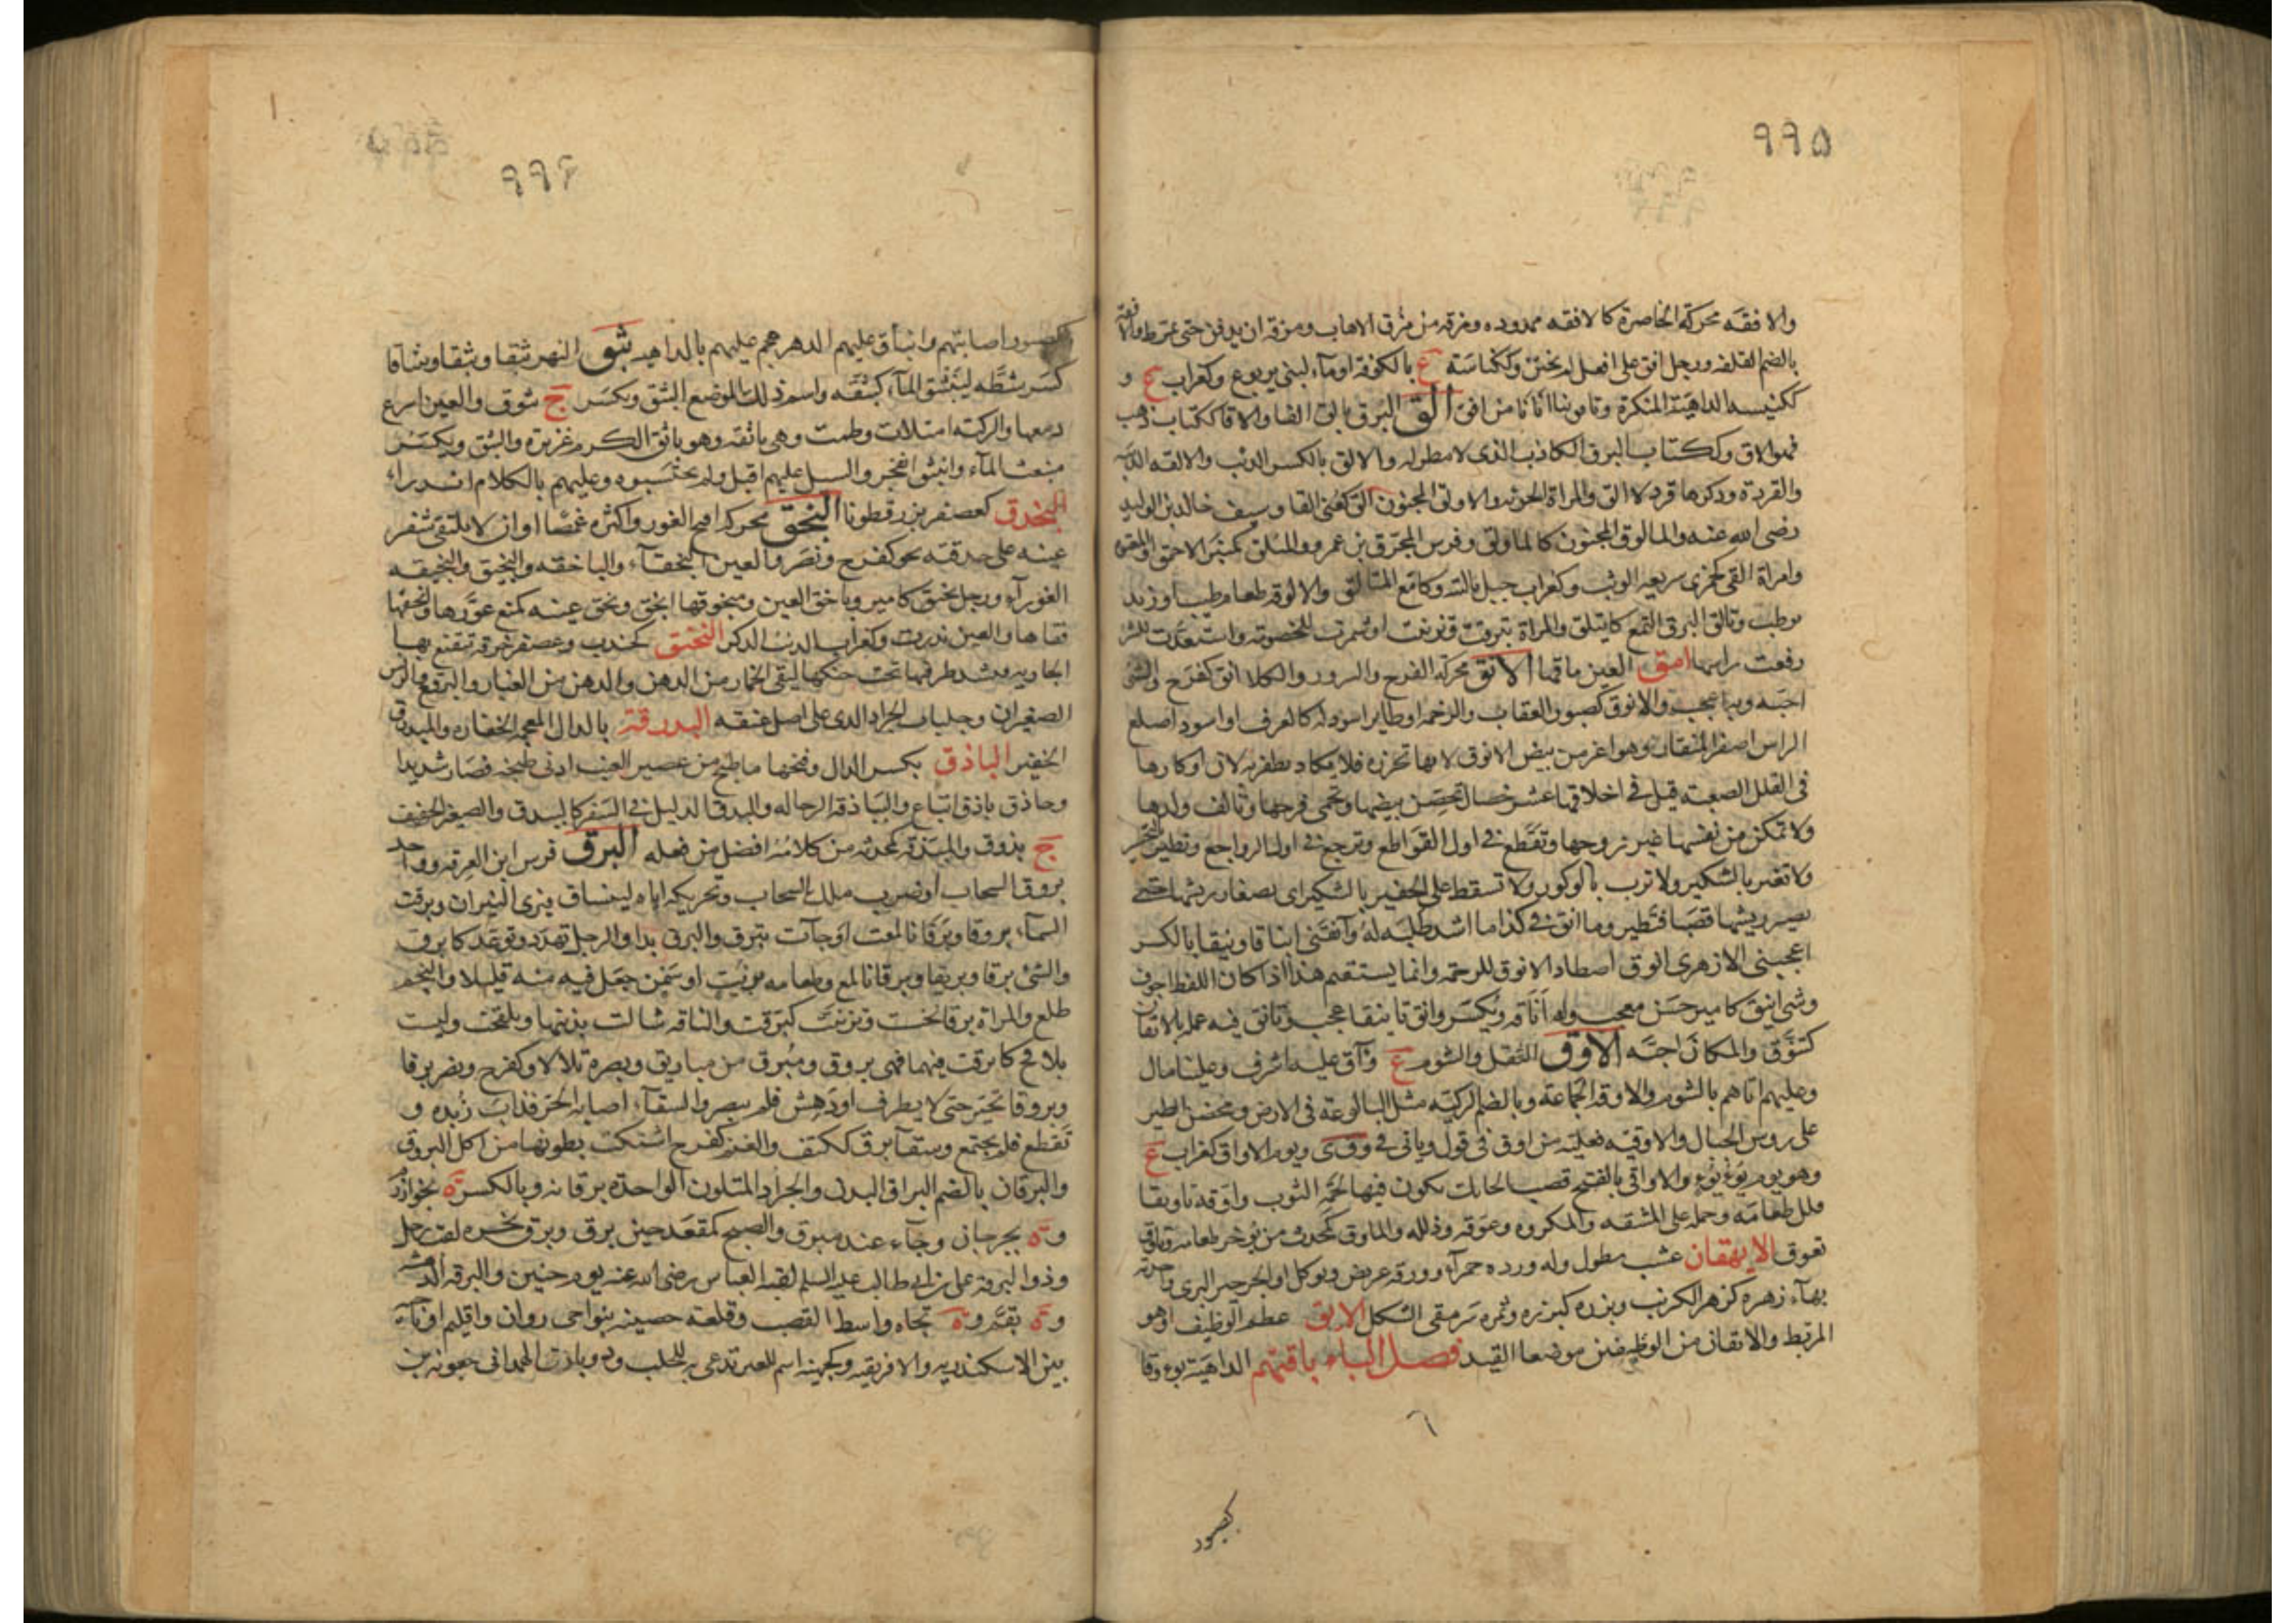 ٩٩٥
والافقه محركة الخاصرة كالافقه ممدوده ومرقه من مرق الاهاب ومرقه ان يدفن حتى يمرط والافقه
بالضم القلفه ورجل افق على افعل لم يختن وككناسة ع بالكوفة او مآء لبنى يربوع وكغراب ع و
ككنيسه الداهية المنكرة وتافق بنا اتانا من افق الق البرق يالق القا والاقا ككتاب كذب
فهو الاق وككتاب البرق الكاذب الذى لا مطر له والالق بالكسر الذئب والالقه الذئبه
والقردة وذكرها قرد لا الق والمراة الجريئه والاولق الجنون الق كعنى القا وسيف خالد بن الوليد
رضى الله عنه والمالوق المجنون كالماولق وفرس المحرق بن عمرو والمئلق كمنبر الاحمق والمعتوه
وامراة القى كجمزى سريعه الوثب وكغراب جبل بالتيه وكامع المتالق والالوقه طعام طيب او زبد
برطب وتالق البرق التمع كايتلق والمراة تبرقت وتزينت او شمرت للخصومة واستعدت للشر
رفعت راسها امق العين ماقها الانق محركة الفرح والسرور والكلا انق كفرح والشئ
احبه وبه اعجب والانوق كصبور العقاب والرخمه او طاير اسود له كالعرف او اسود اصلع
الراس اصفر المنقار وهو اعز من بيض الانوق لانها تحرزه فلا يكاد يظفر به لان اوكارها
فى القلل الصعبه قيل فى اخلاقها عشر خصال تحضن بيضها وتحمى فرخها وتالف ولدها
ولا تمكن من نفسها غير زوجها وتقطع فى اول القواطع وترجع فى اول الرواجع ولا تطير فى التحسير
ولا تغتر بالشكير ولا ترب بالوكور ولا تسقط على الجفير بالشكير اى بصغار ريشها حتى
يصير ريشها قصبا فتطير وما انقه فى كذا ما اشد طلبه له وآنقنى ايناقا ونيقا بالكسر
اعجبنى الازهرى انوق اصطاد الانوق للرخمه وانما يستقيم هذا اذا كان اللفظ اجوف
وشئ انيق كامير حسن معجب وله اناقه ويكسر وانق تانيقا عجب وتانق فيه عمله بالاتقان
كتنوق والمكان احبه الاوق الثقل والشوم ع وآق عليه اشرف وعلينا مال
وعليهم اتاهم بالشوم والاوقه الجماعة وبالضم الركيه مثل البالوعة فى الارض ومحضن الطير
على روس الجبال والاوقيه فعليه من اوق فى قول وياتى فى وقى ويوم الاواق كغراب ع
وهو يوم يؤيؤ والاواقى بالفتح قصب الحايك يكون فيها لحمه الثوب واوقه تاويقا
قلل طعامه وحمله على المشقه والمكروه وعوقه وذلله والماوق كمحدث من يوخر طعامه وتاوق
تعوق الايهقان عشب مطول وله ورده حمرآء وورقه عريض ويوكل او الجرجير البرى واحدته
بهآء زهره كزهر الكرنب وبزره كبزره وثمره سرمقى الشكل الايق عظم الوظيف او هو
المريط والايقان من الوظيفين موضعا القيد فصل الباء باقتهم الداهية بوءوقا
كصبور
٩٩٦
كصبور اصابتهم وانباق عليهم الدهر هجم عليهم بالداهيه بثق النهر بثقا وبثقا وتبثاقا
كسر شطه لينبثق المآء كبثقه واسم ذلك الموضع البثق ويكسر ج بثوق والعين اسرع
دمعها والركيه امتلات وطمت وهى باثقه وهو باثق الكرم غزيره والبثق ويكسر
منبعث المآء وانبثق انفجر والسيل عليهم اقبل ولم يحتسبوه وعليهم بالكلام اندرا
البخدق كعصفر بزر قطونا البخق محركه اقبح العور واكثره غمصا او ان لا يلتقى شفر
عينه على حدقته بخق كفرح ونصر والعين البخقآء والباخقه والبخيق والبخيقه
العورآء ورجل بخيق كامير وباخق العين ومبخوقها ابخق وبخق عينه كمنع عورها وابخقها
فقاها والعين ندرت وكغراب الذئب الذكر البخنق كجندب وعصفر خرقه تتقنع بها
الجاريه فتشد طرفيها تحت حنكها لتقى الخمار من الدهن والدهن من الغبار والبرقع والبرنس
الصغيران وجلباب الجراد الذى على اصل عنقه البدرقة بالدال المعجمه الخفاره والمبذرق
الخفير الباذق بكسر الذال وفتحها ما طبخ من عصير العنب ادنى طبخه فصار شديدا
وحاذق باذق اتباع والبياذقه الرجاله والبيدق الدليل فى السفر كالبيدق والصغير الخفيف
ج بذوق والمبذقه كمحدثه من كلامه افضل من فعله البرق فرس ابن العرقه وواحد
بروق السحاب او ضرب ملك السحاب وتحريكه اياه لينساق فترى النيران وبرقت
السمآء بروقا وبرقانا لمعت او جآت ببرق والبرق بدا والرجل تهدد وتوعد كابرق
والشئ برقا وبريقا وبرقانا لمع وطعامه بزيت او سمن جعل فيه منه قليلا والنجم
طلع والمراة برقا تحسنت وتزينت كبرقت والناقه شالت بذنبها وتلقحت وليست
بلاقح كابرقت فيهما فهى بروق ومبرق من مباريق وبصره تلالا وكفرح ونصر برقا
وبروقا تحير حتى لا يطرف او دهش فلم يبصر والسقآء اصابه الحر فذاب زبده و
تقطع فلم يجتمع وسقآ برق ككتف والغنم كفرح اشتكت بطونها من اكل البروق
والبرقان بالضم البراق البدن والجراد المتلون الواحدة برقانه وبالكسر ة بخوارزم
وة بجرجان وجآء عند مبرق والصبح كمقعد حين برق وبرق نحره لقب رجل
وذو البرقه على بن ابى طالب عليه السلم لقبه العباس رضى الله عنه يوم حنين والبرقه الدهشه
وة بقم وة تجاه واسط القصب وقلعة حصينه بنواحى دوان واقليم او ناحية
بين الاسكندريه والافريقيه وكجهينه اسم للعنز تدعى به للحلب وذو بارق الهمدانى جعونه بن